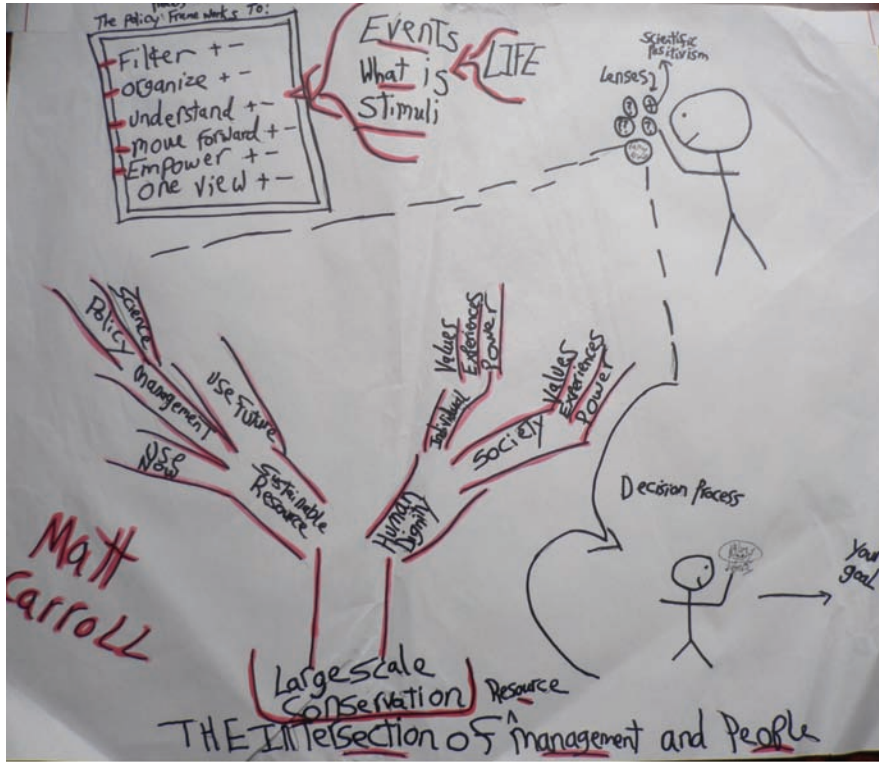 The Policy Frameworks To:
Filter + -
organize + -
understand + -
move forward + -
Empower + -
one view + -
Events
What is
Stimuli
LIFE
Scientific
Positivism
Lenses
Science
Policy
management
USE Future
USE
NOW
Sustainable
Resource
Values
Experiences
Power
Individual
Values
Experiences
Power
Society
Human
Dignity
Decision Process
Your
goal
Matt
Carroll
Large scale
Conservation
Resource
THE Intersection OF ^ management and People